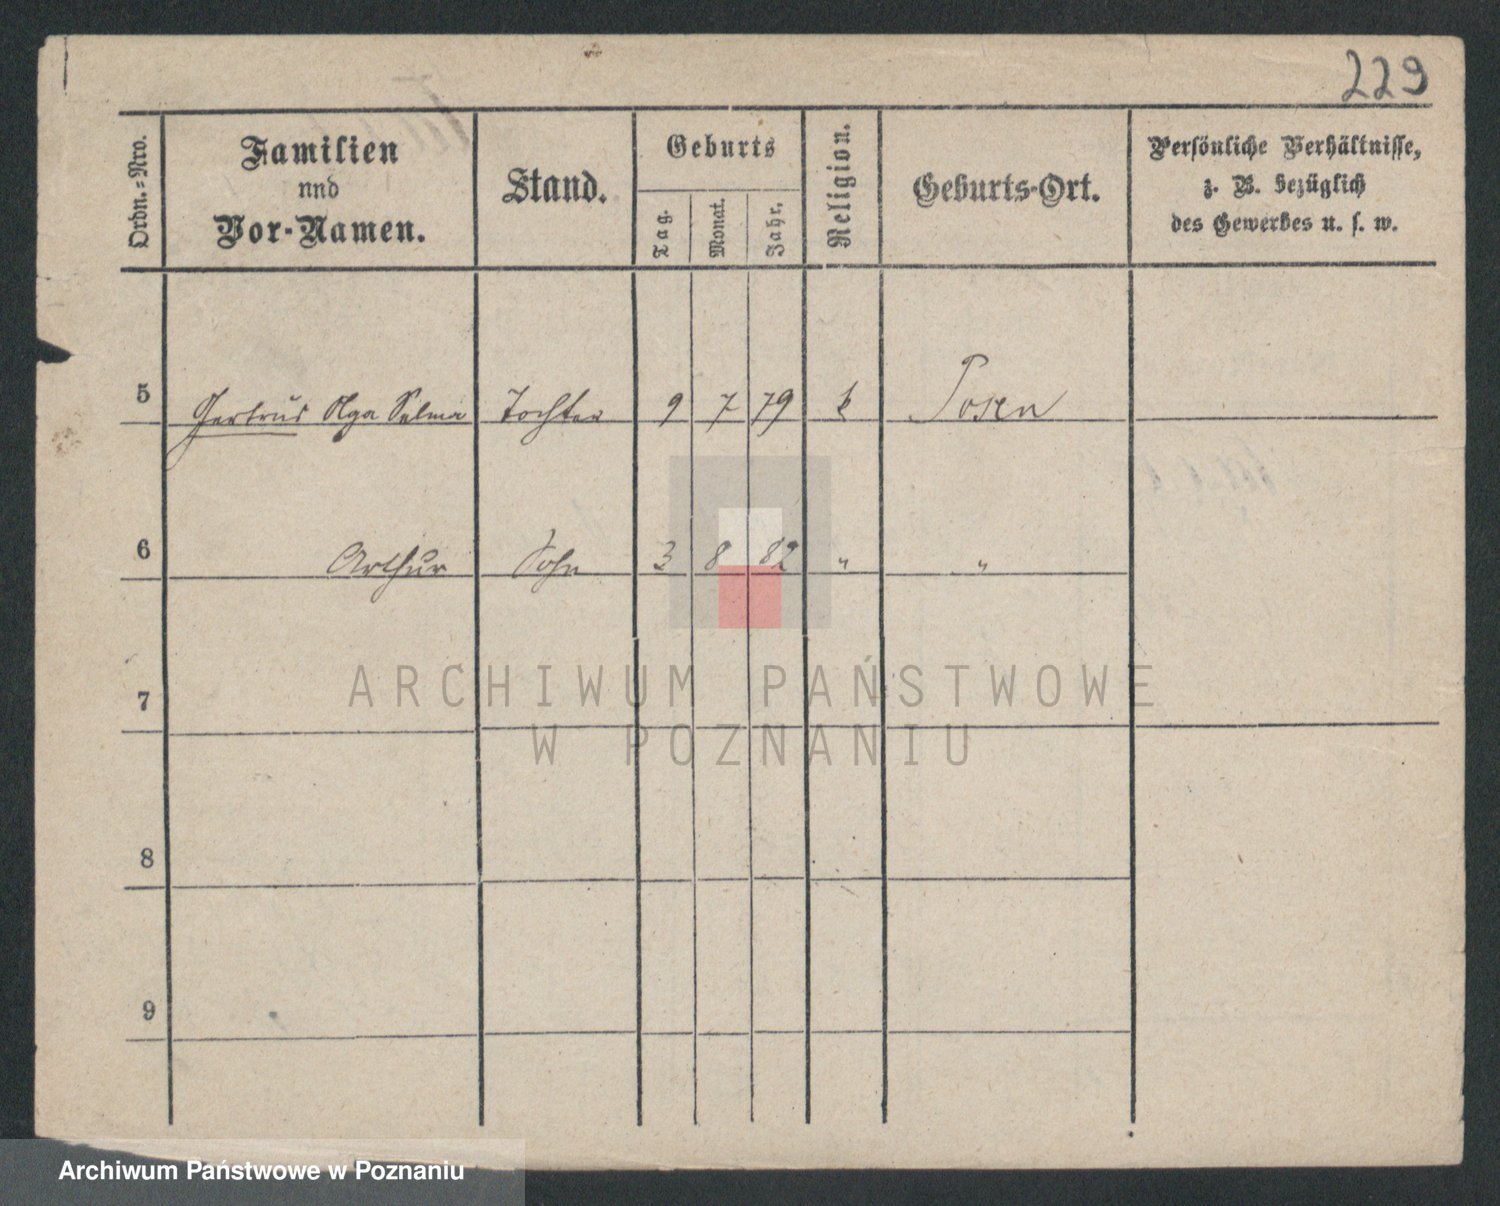 229
Ordn.=Nro.
Familien
nnd
Vor-Namen.
Stand.
Geburts
Tag.
Monat.
Jahr.
Religion.
Geburts-Ort.
Persönliche Verhältnisse,
z. B. bezüglich
des Gewerbes u. s. w.
5 Gertrud Olga Selma Tochter 9 7 79 k Posen
6 Arthur Sohn 3 8 82 " "
7
8
9
ARCHIWUM PAŃSTWOWE
W POZNANIU
Archiwum Państwowe w Poznaniu